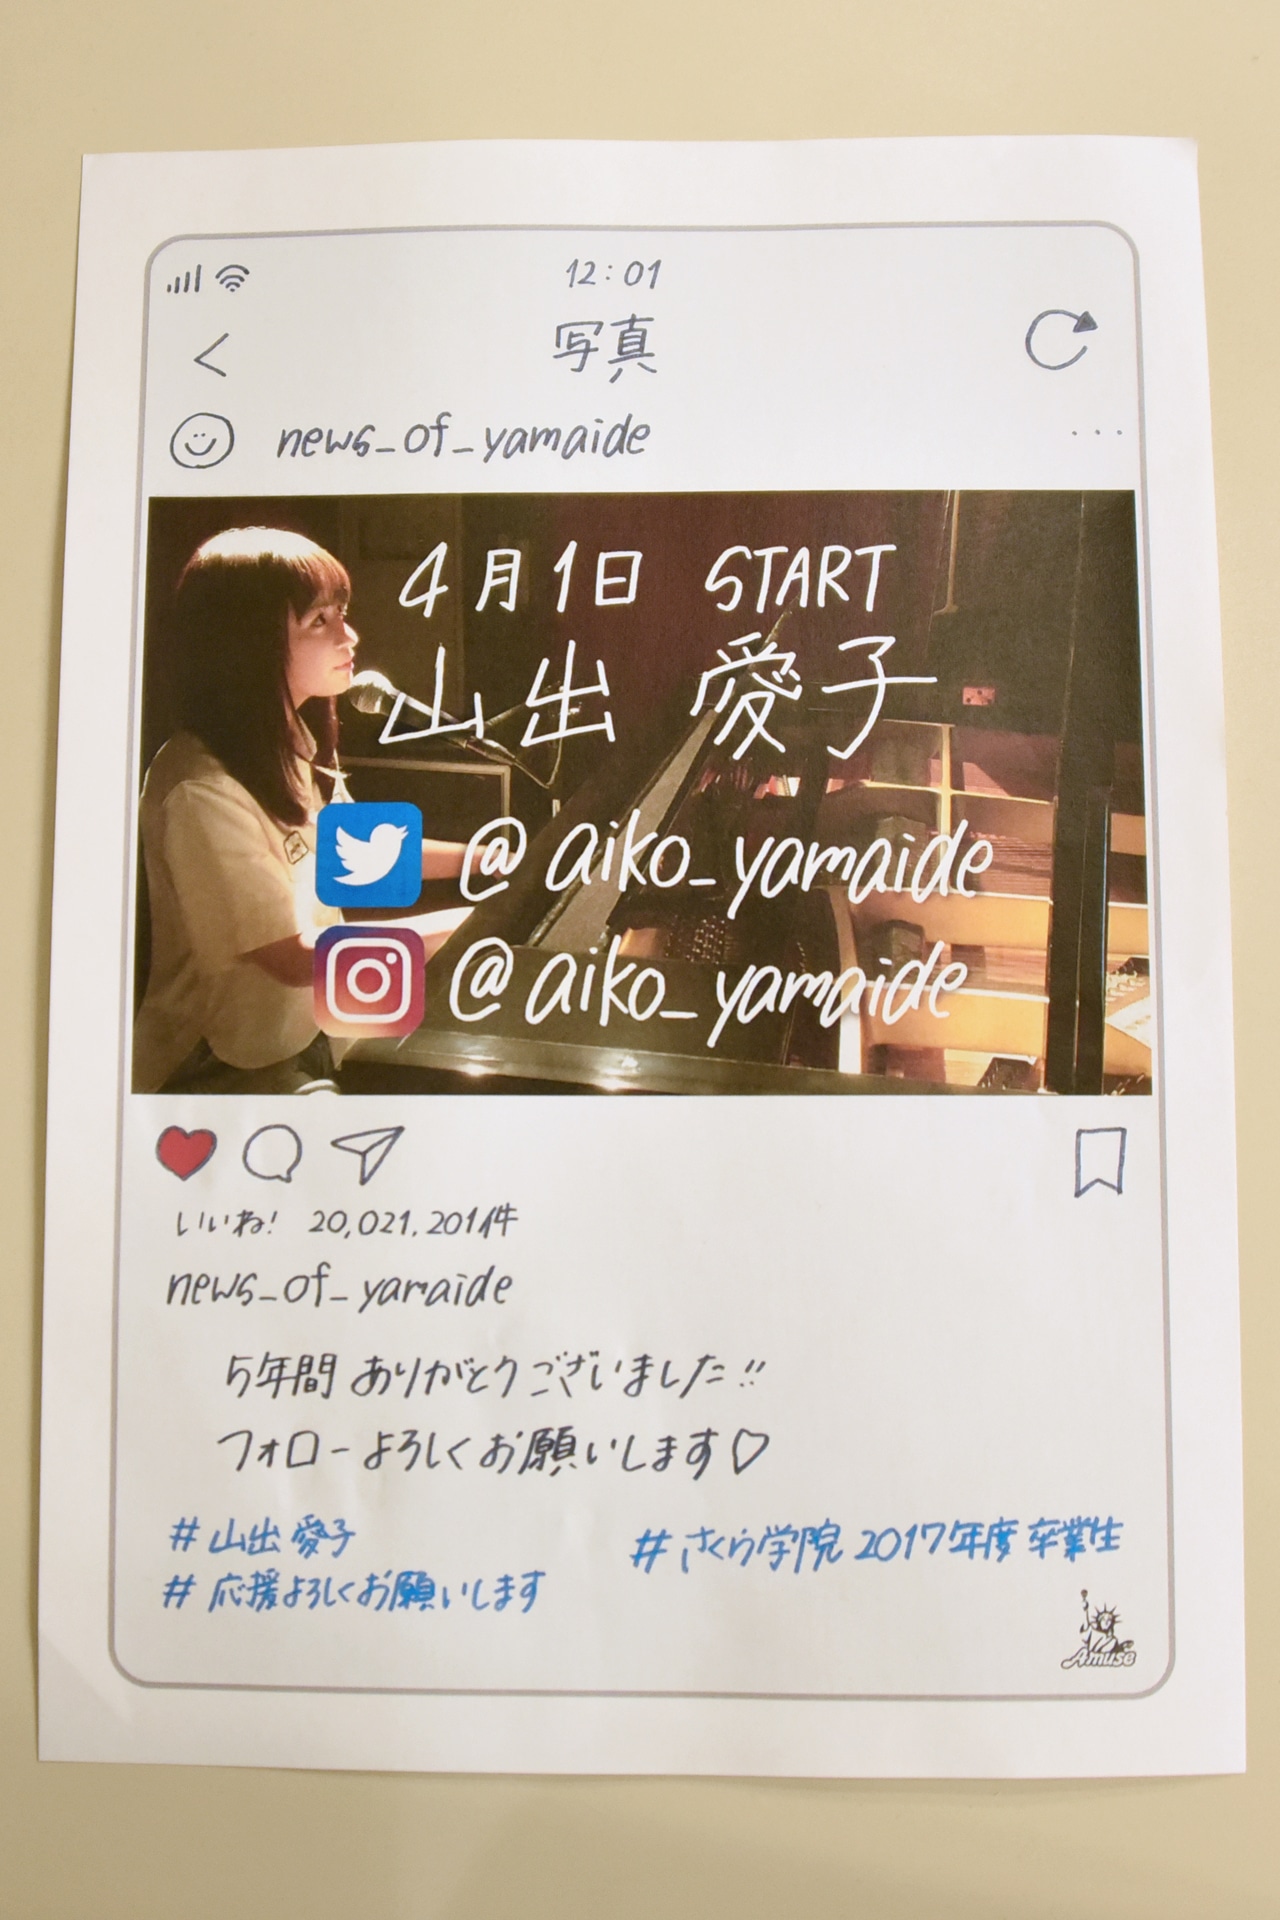 12:01
写真
news_of_yamaide
4月1日 START
山出 愛子
@aiko_yamaide
@aiko_yamaide
いいね! 20,021,201件
news_of_yamaide
5年間 ありがとうございました!!
フォローよろしくお願いします♡
#山出 愛子
#さくら学院 2017年度 卒業生
#応援よろしくお願いします
Amuse